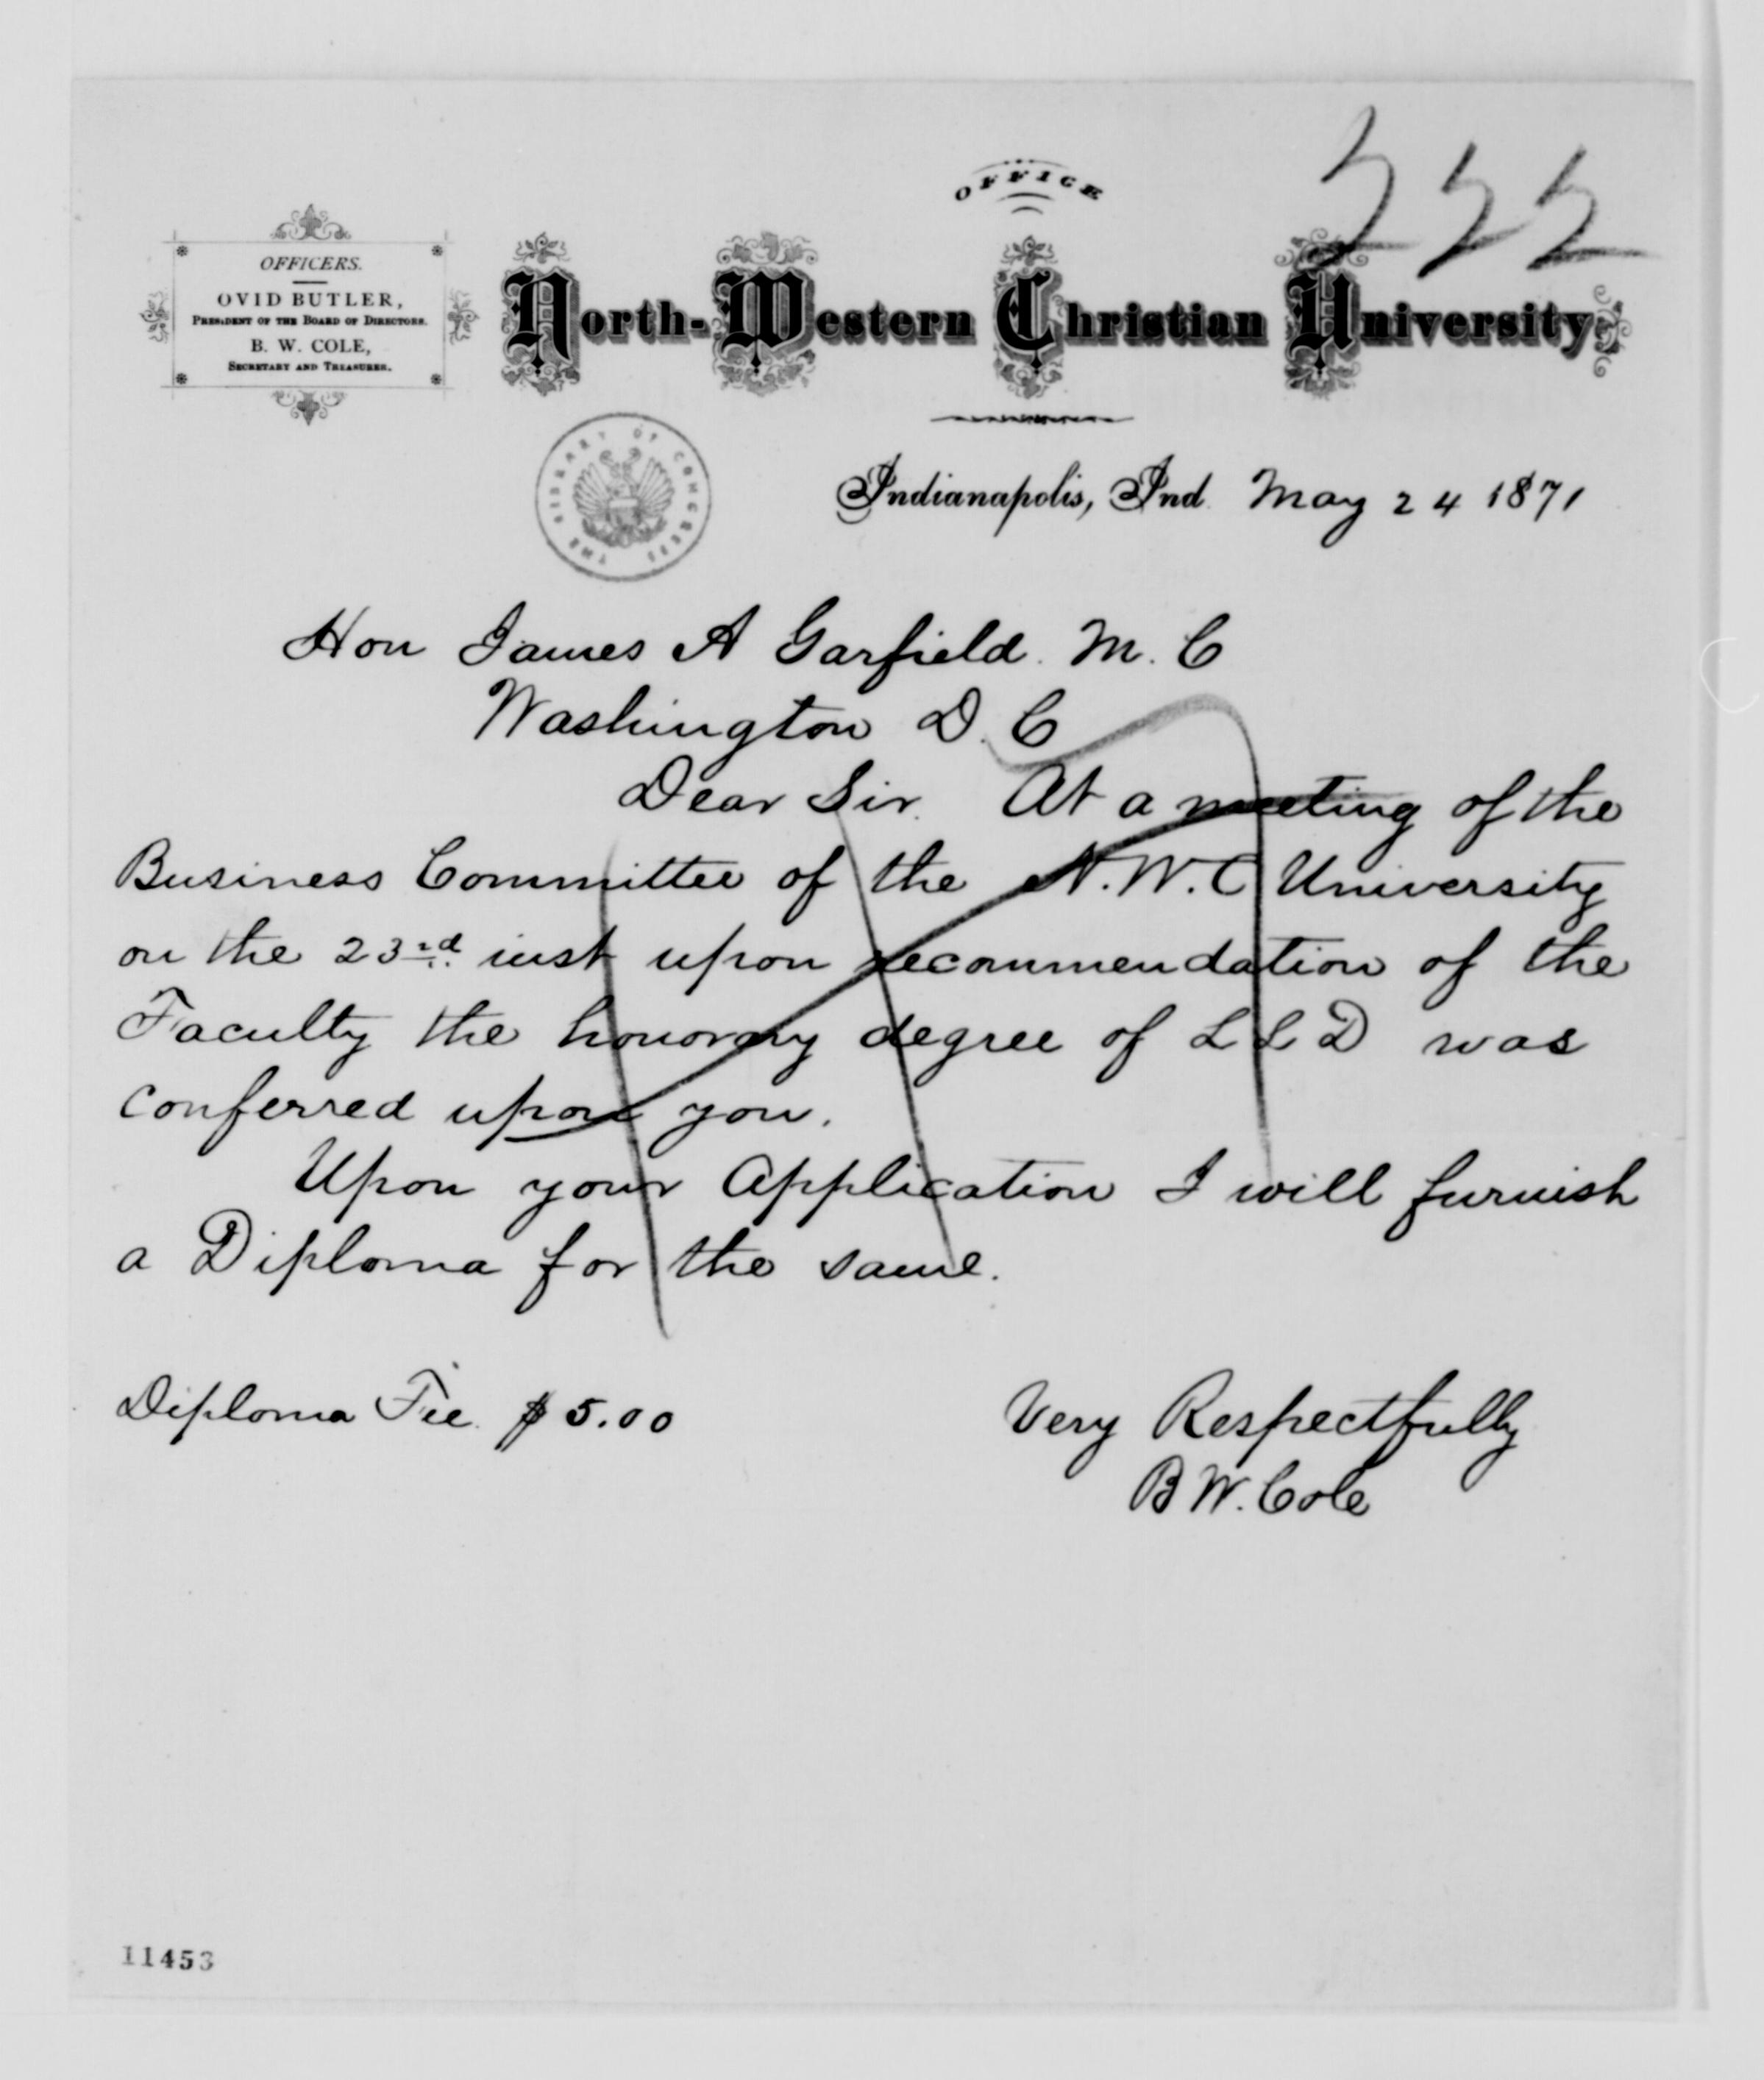 222
OFFICE
OFFICERS.
OVID BUTLER,
PRESIDENT OF THE BOARD OF DIRECTORS.
B. W. COLE,
SECRETARY AND TREASURER.
North-Western Christian University,
THE LIBRARY OF CONGRESS
Indianapolis, Ind. May 24 1871
Hon James A Garfield. M. C
Washington D. C
Dear Sir. At a meeting of the
Business Committee of the N. W. C University
on the 23rd. inst upon recommendation of the
Faculty the honorary degree of L L D was
conferred upon you.
Upon your Application I will furnish
a Diploma for the same.
Diploma Fee. $5.00
Very Respectfully
B W. Cole
11453